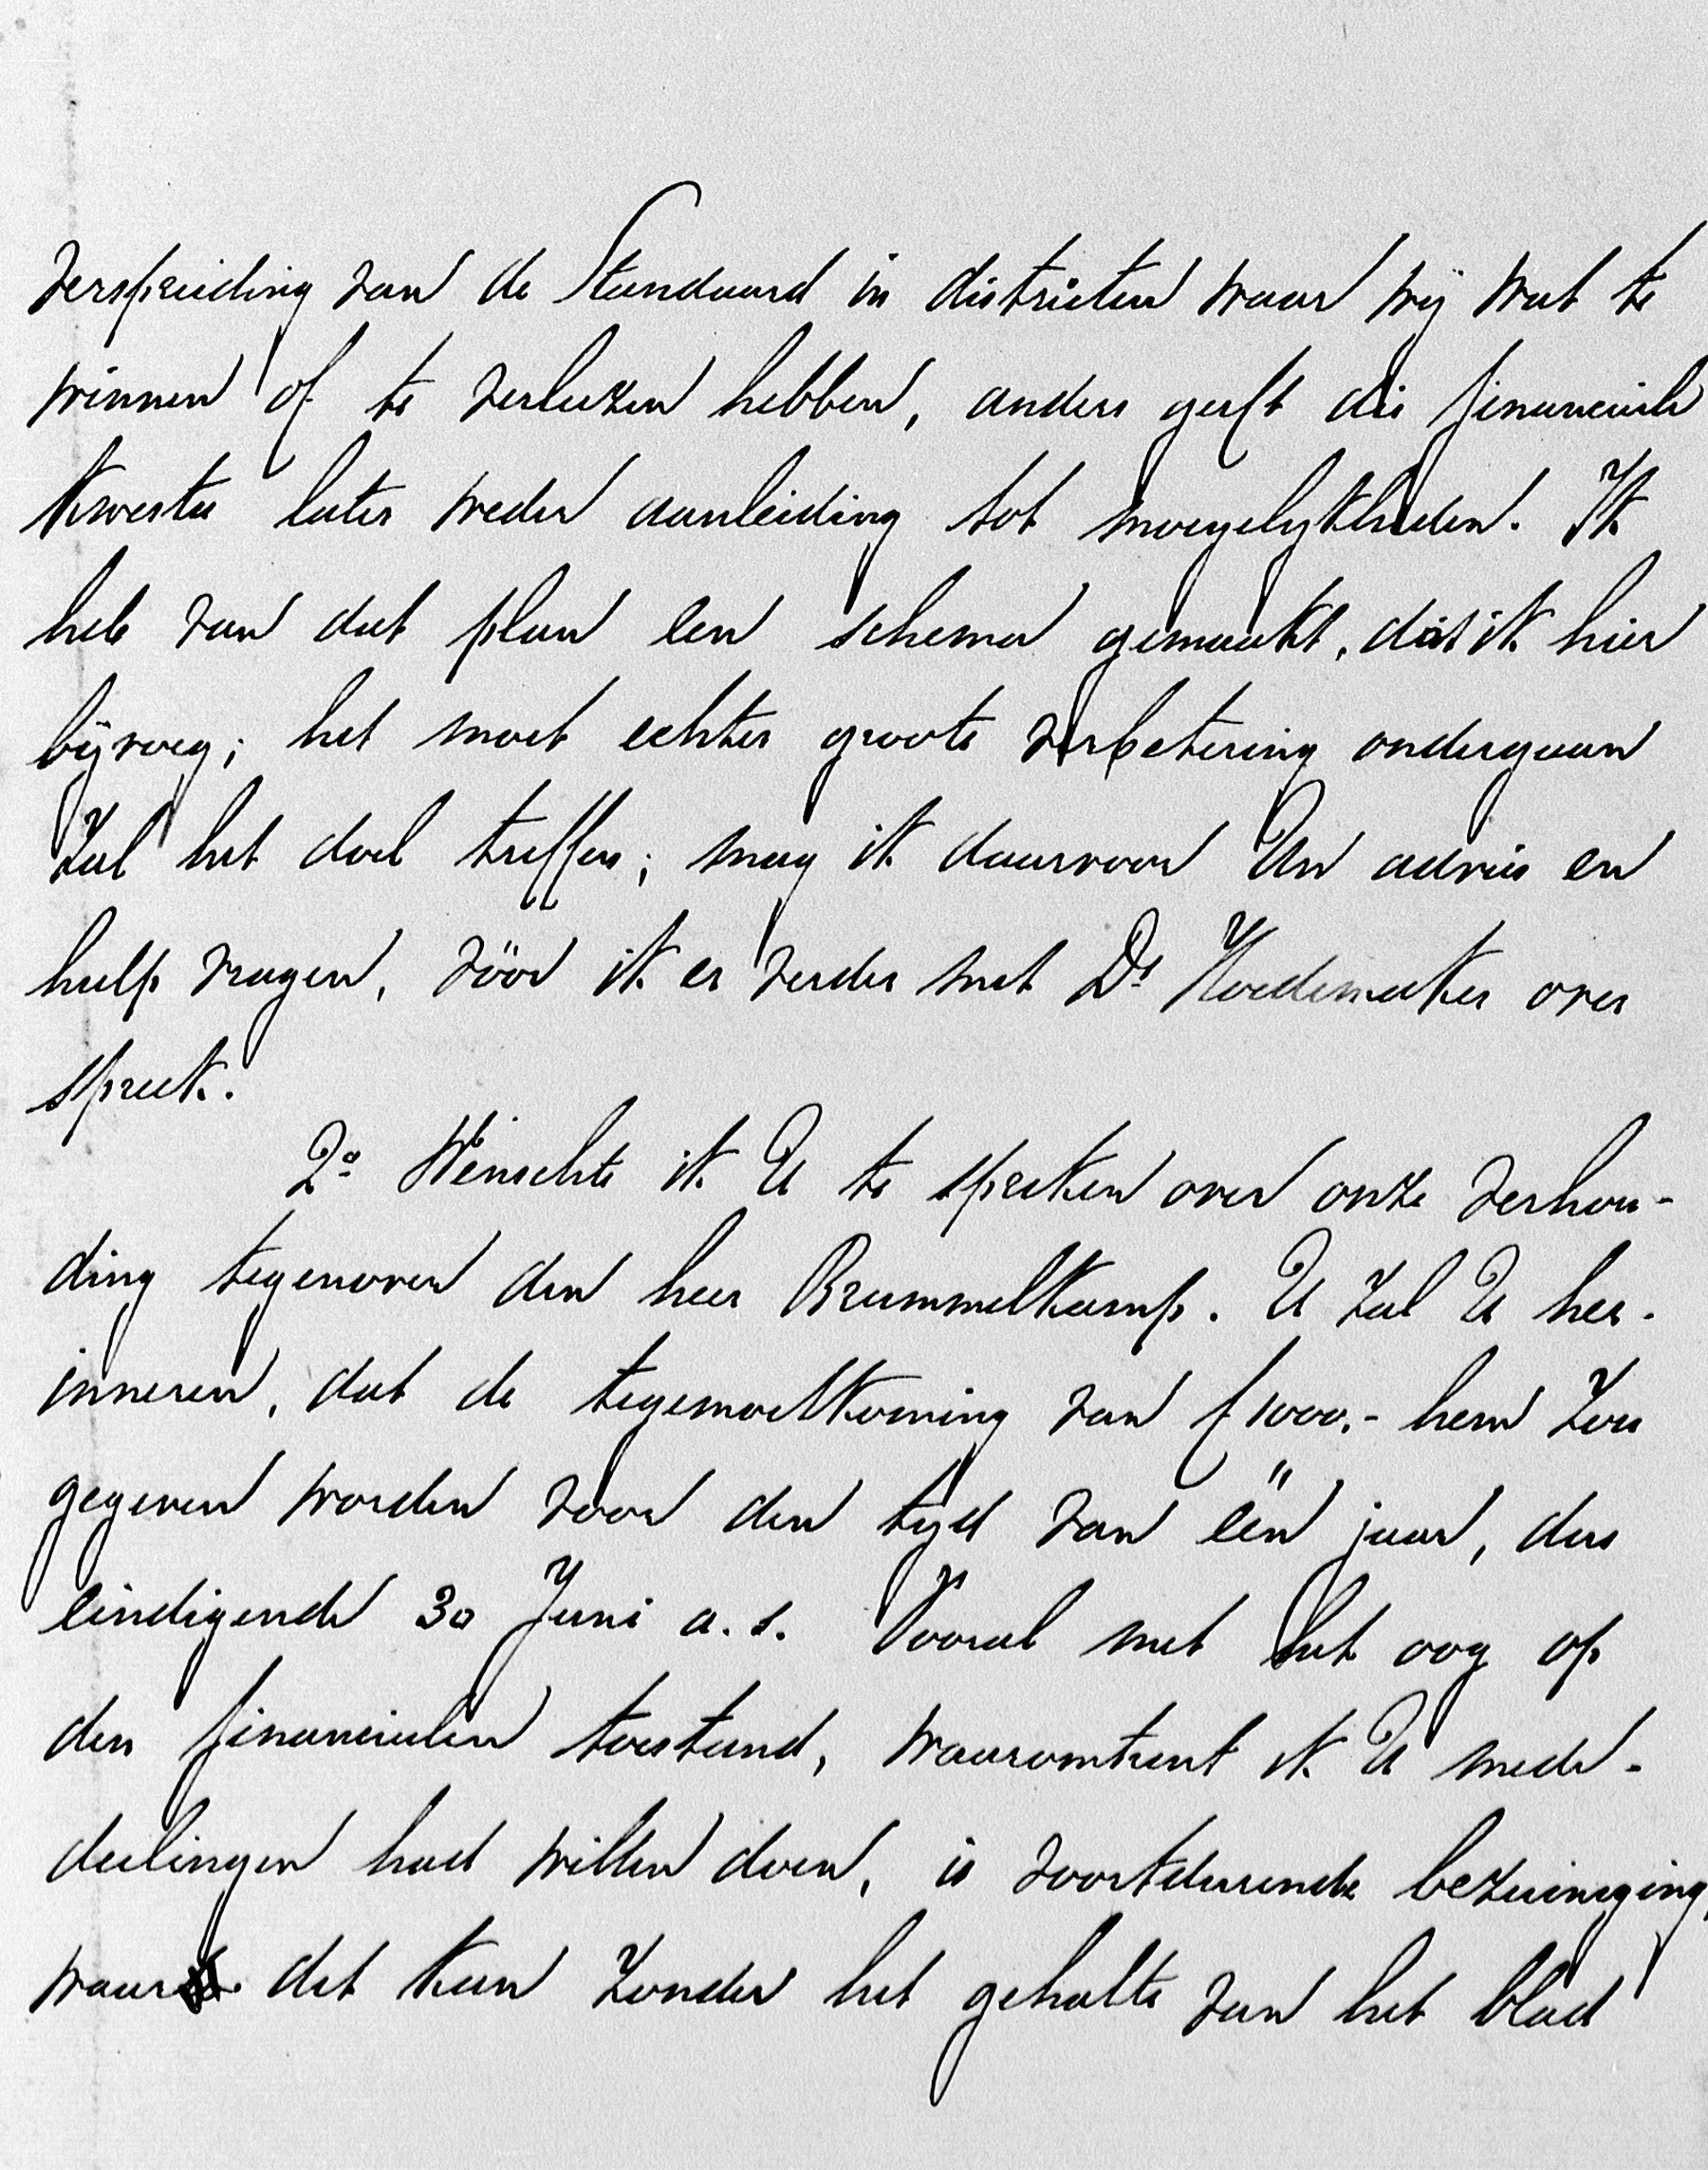 verspreiding van de Standaard in districten waar wij wat te
winnen of te verliezen hebben, anders geeft die financieele
kwestie later weder aanleiding tot moeyelykheden. Ik
heb van dat plan een schema gemaakt, dat ik hier
bijvoeg; het moet echter groote verbetering ondergaan
zal het doel treffen; mag ik daarvoor Uw advies en
hulp vragen, vóór ik er verder met Ds Hoedemaker over
spreek.
2o Wenschte ik U te spreken over onze verhou-
ding tegenover den heer Brummelkamp. U zal U her-
inneren, dat de tegemoetkoming van f 1000.- hem zou
gegeven worden voor den tyd van één jaar, dus
eindigende 30 Juni a.s. Vooral met het oog op
den financieelen toestand, waaromtrent ik U mede-
deelingen had willen doen, is voortdurende bezuiniging,
waar dit kan zonder het gehalte van het blad